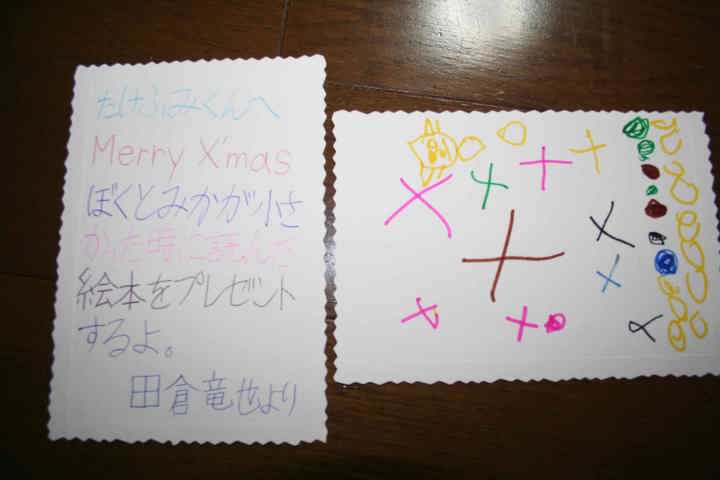 たけふみくんへ
Merry X'mas
ぼくとみかが小さ
かった時に読んだ
絵本をプレゼント
するよ。
田倉竜也より